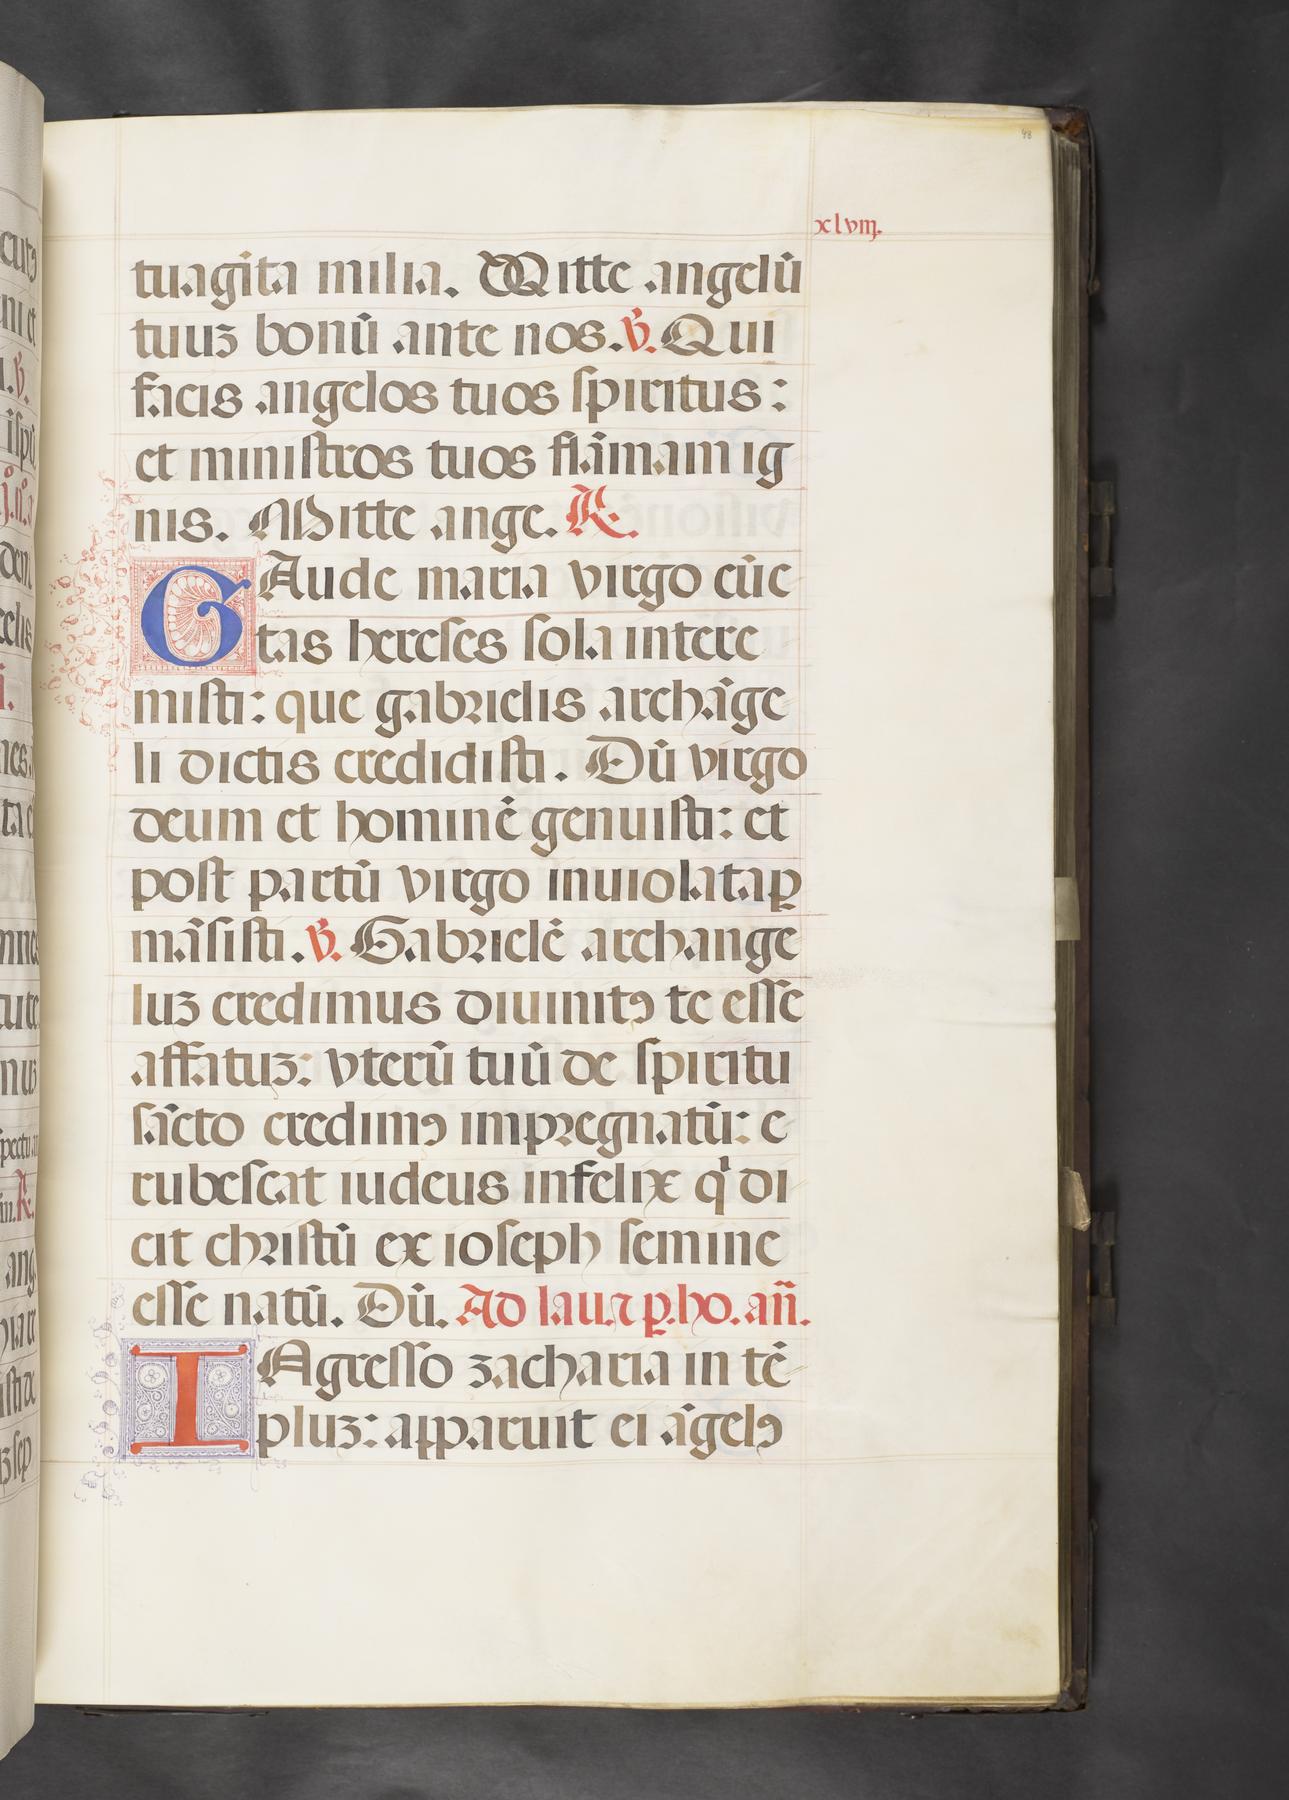 48
xlviij.
tuagita milia. Mitte angelū
tuuʒ bonū ante nos. ℣. Qui
facis angelos tuos ſpiritus:
et miniſtros tuos flāmam ig
nis. Mitte ange. ℟.
GAude maria virgo cūc
tas hereſes ſola intere
miſti: que gabrielis archāge
li dictis credidiſti. Dū virgo
deum et hominē genuiſti: et
poſt partū virgo inuiolata ꝑ
māſiſti. ℣. Gabrielē archange
luʒ credimus diuinitꝯ te eſſe
affatuʒ: vterū tuū de ſpiritu
ſācto credimꝯ impregnatū: e
rubeſcat iudeus infelix qͥ di
cit chriſtū ex ioſeph ſemine
eſſe natū. Dū. Ad lau. ⁊ ꝑ. ho. añ.
INgreſſo zacharia in tē
pluʒ: apparuit ei āgelꝯ